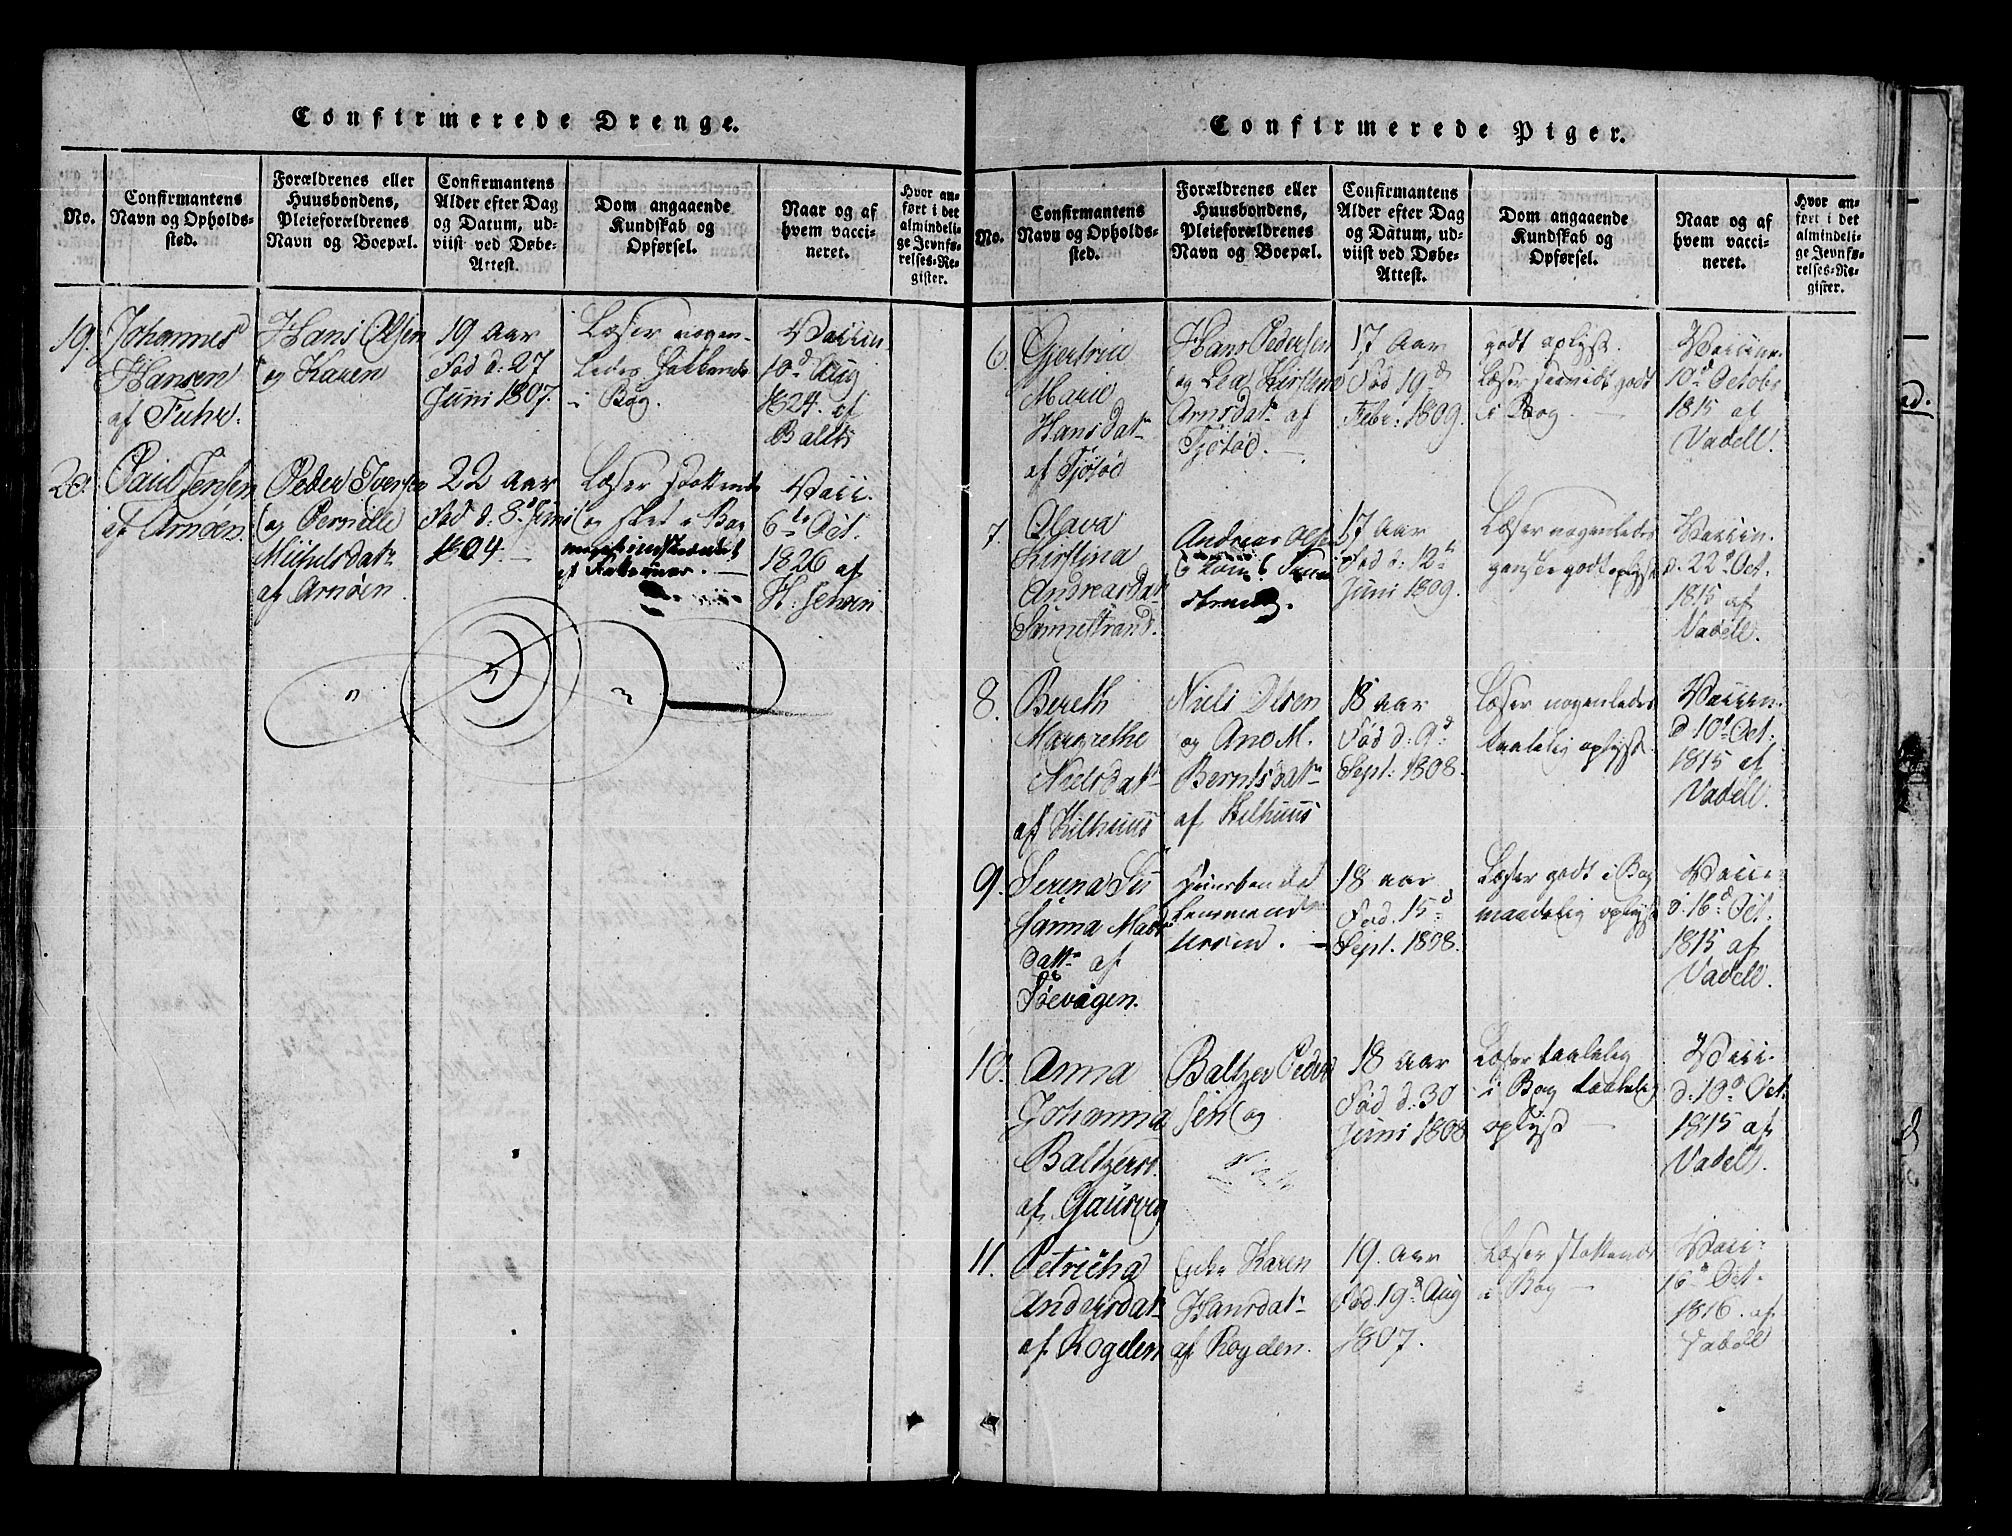 Confirmerede Drenge.
No.
Confirmantens
Navn og Opholds-
sted.
Forældrenes eller
Huusbondens,
Pleieforældrenes
Navn og Boepæl.
Confirmantens
Alder efter Dag
og Datum, ud-
viist ved Døbe-
Attest.
Dom angaaende
Kundskab og
Opførsel.
Naar og af
hvem vacci-
neret.
Hvor an-
ført i det
almindeli-
ge Jevnfø-
relses-Re-
gister.
19.
Johannes
Hansen
af Fuhr.
Hans Olsen
og Karen
19 Aar
Fød d: 27
Juni 1807.
Læser nogen-
ledes
i Bog.
Vaccin
10d Aug
1824. af
20.
Paul Jensen
af Arnøen.
Peder Iversen
og Pernille
Michelsdatr
af Arnøen.
22 Aar
Fød d: 8d Juni
1804.
Læser stottende
i Bog
Vacc.
6te Oct.
1826 af
H: Jensen
Confirmerede Piger.
No.
Confirmantens
Navn og Opholds-
sted.
Forældrenes eller
Huusbondens,
Pleieforældrenes
Navn og Boepæl.
Confirmantens
Alder efter Dag
og Datum, ud-
viist ved Døbe-
Attest.
Dom angaaende
Kundskab og
Opførsel.
Naar og af
hvem vacci-
neret.
Hvor an-
ført i det
almindeli-
ge Jevnfø-
relses-Re-
gister.
6.
Gjertrue
Marie
Hansdatr
af Fjøsød
Hans Pedersen
og Lea Kirstine
Arnsdatr af
Fjøsød.
17 Aar
Fød 19d
Febr: 1809.
godt oplyst.
Læser godt
i Bog.
Vaccine.
10d Octobr
1815 af
Vadell.
7.
Olava
Kirstina
Andreasdatr
Sannestrand.
Andreas Olsen
17 Aar
Fød d: 12te
Juni 1809.
Læser nogenledes
ganske godt oplyst
Vaccin.
d. 22d Oct.
1815 af
Vadell.
8.
Bereth
Margrethe
Nielsdatr
af Kilhuus
Niels Olsen
og Ane M.
Berntsdatr
af Kilhuus
18 Aar
Fød d: 9d
Sept: 1808.
Læser nogenledes
taalelig oplyst.
Vaccin.
d 10d Oct:
1815 af
Vadell.
9.
Serena Su
sanna Mads
datr af
Søevogen.
18 Aar
Fød. 15d
Sept. 1808.
Læser godt i Bog
maadelig oplyst
Vacci.
d. 16d Oct.
1815 af
Vadell.
10.
Anna
Johanna
Baltzers.
af
Baltzer Peder
sen og
18 Aar
Fød d: 30
Juni 1808
Læser taalelig
i Bog taalelig
oplyst
Vacci.
d. 10d Oct.
1815 af
Vadell.
11.
Petricha
Andersdatr
af Kogden
Enke Karen
Hansdatr
af Kogden.
19. Aar
Fød. 19d Aug
1807.
Læser stottende
i Bog
Vacci.
16d Oct.
1816. af
Vadell